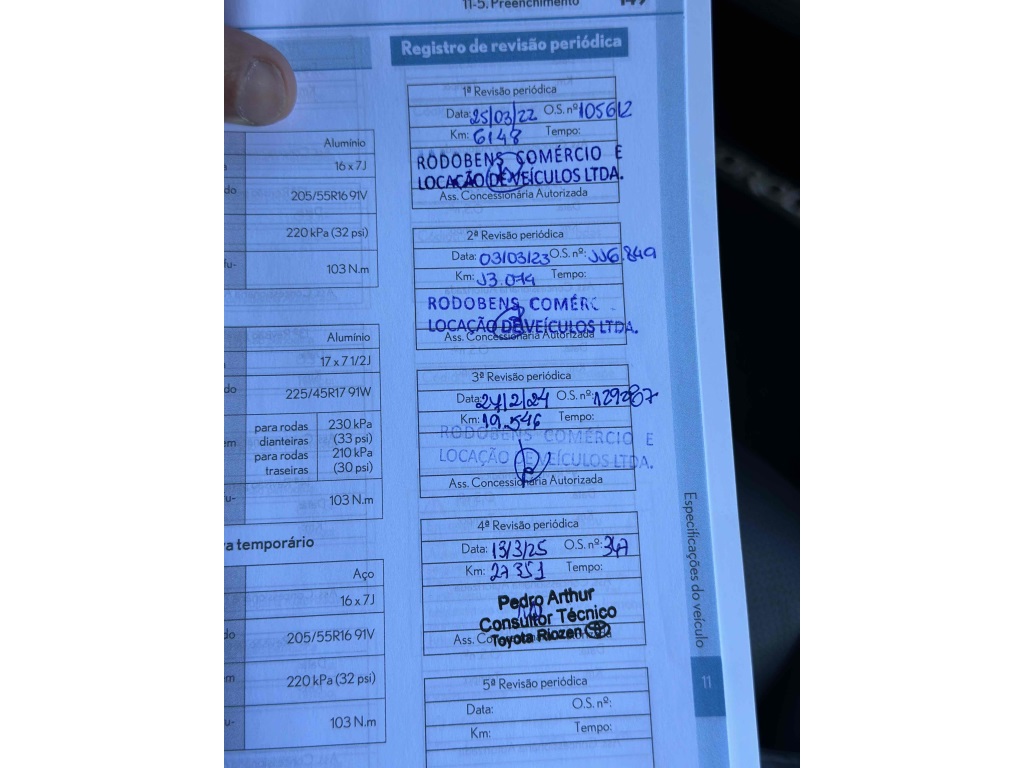 11-5. Preenchimento
149
Alumínio
16 x 7J
205/55R16 91V
220 kPa (32 psi)
103 N.m
Alumínio
17 x 7 1/2J
225/45R17 91W
para rodas dianteiras
230 kPa (33 psi)
para rodas traseiras
210 kPa (30 psi)
103 N.m
temporário
Aço
16 x 7J
205/55R16 91V
220 kPa (32 psi)
103 N.m
Registro de revisão periódica
1ª Revisão periódica
Data: 25/03/22 O.S. nº 105612
Km: 6148 Tempo:
RODOBENS COMÉRCIO E
LOCAÇÃO DE VEÍCULOS LTDA.
Ass. Concessionária Autorizada
2ª Revisão periódica
Data: 03/03/23 O.S. nº: 116.849
Km: 13.074 Tempo:
RODOBENS COMÉRC
LOCAÇÃO DE VEÍCULOS LTDA.
Ass. Concessionária Autorizada
3ª Revisão periódica
Data: 27/2/24 O.S. nº: 129287
Km: 19.546 Tempo:
RODOBENS COMÉRCIO E
LOCAÇÃO DE VEÍCULOS LTDA.
Ass. Concessionária Autorizada
4ª Revisão periódica
Data: 13/3/25 O.S. nº: 347
Km: 27351 Tempo:
Pedro Arthur
Consultor Técnico
Toyota Riozen
5ª Revisão periódica
Data: O.S. nº:
Km: Tempo:
Especificações do veículo
11